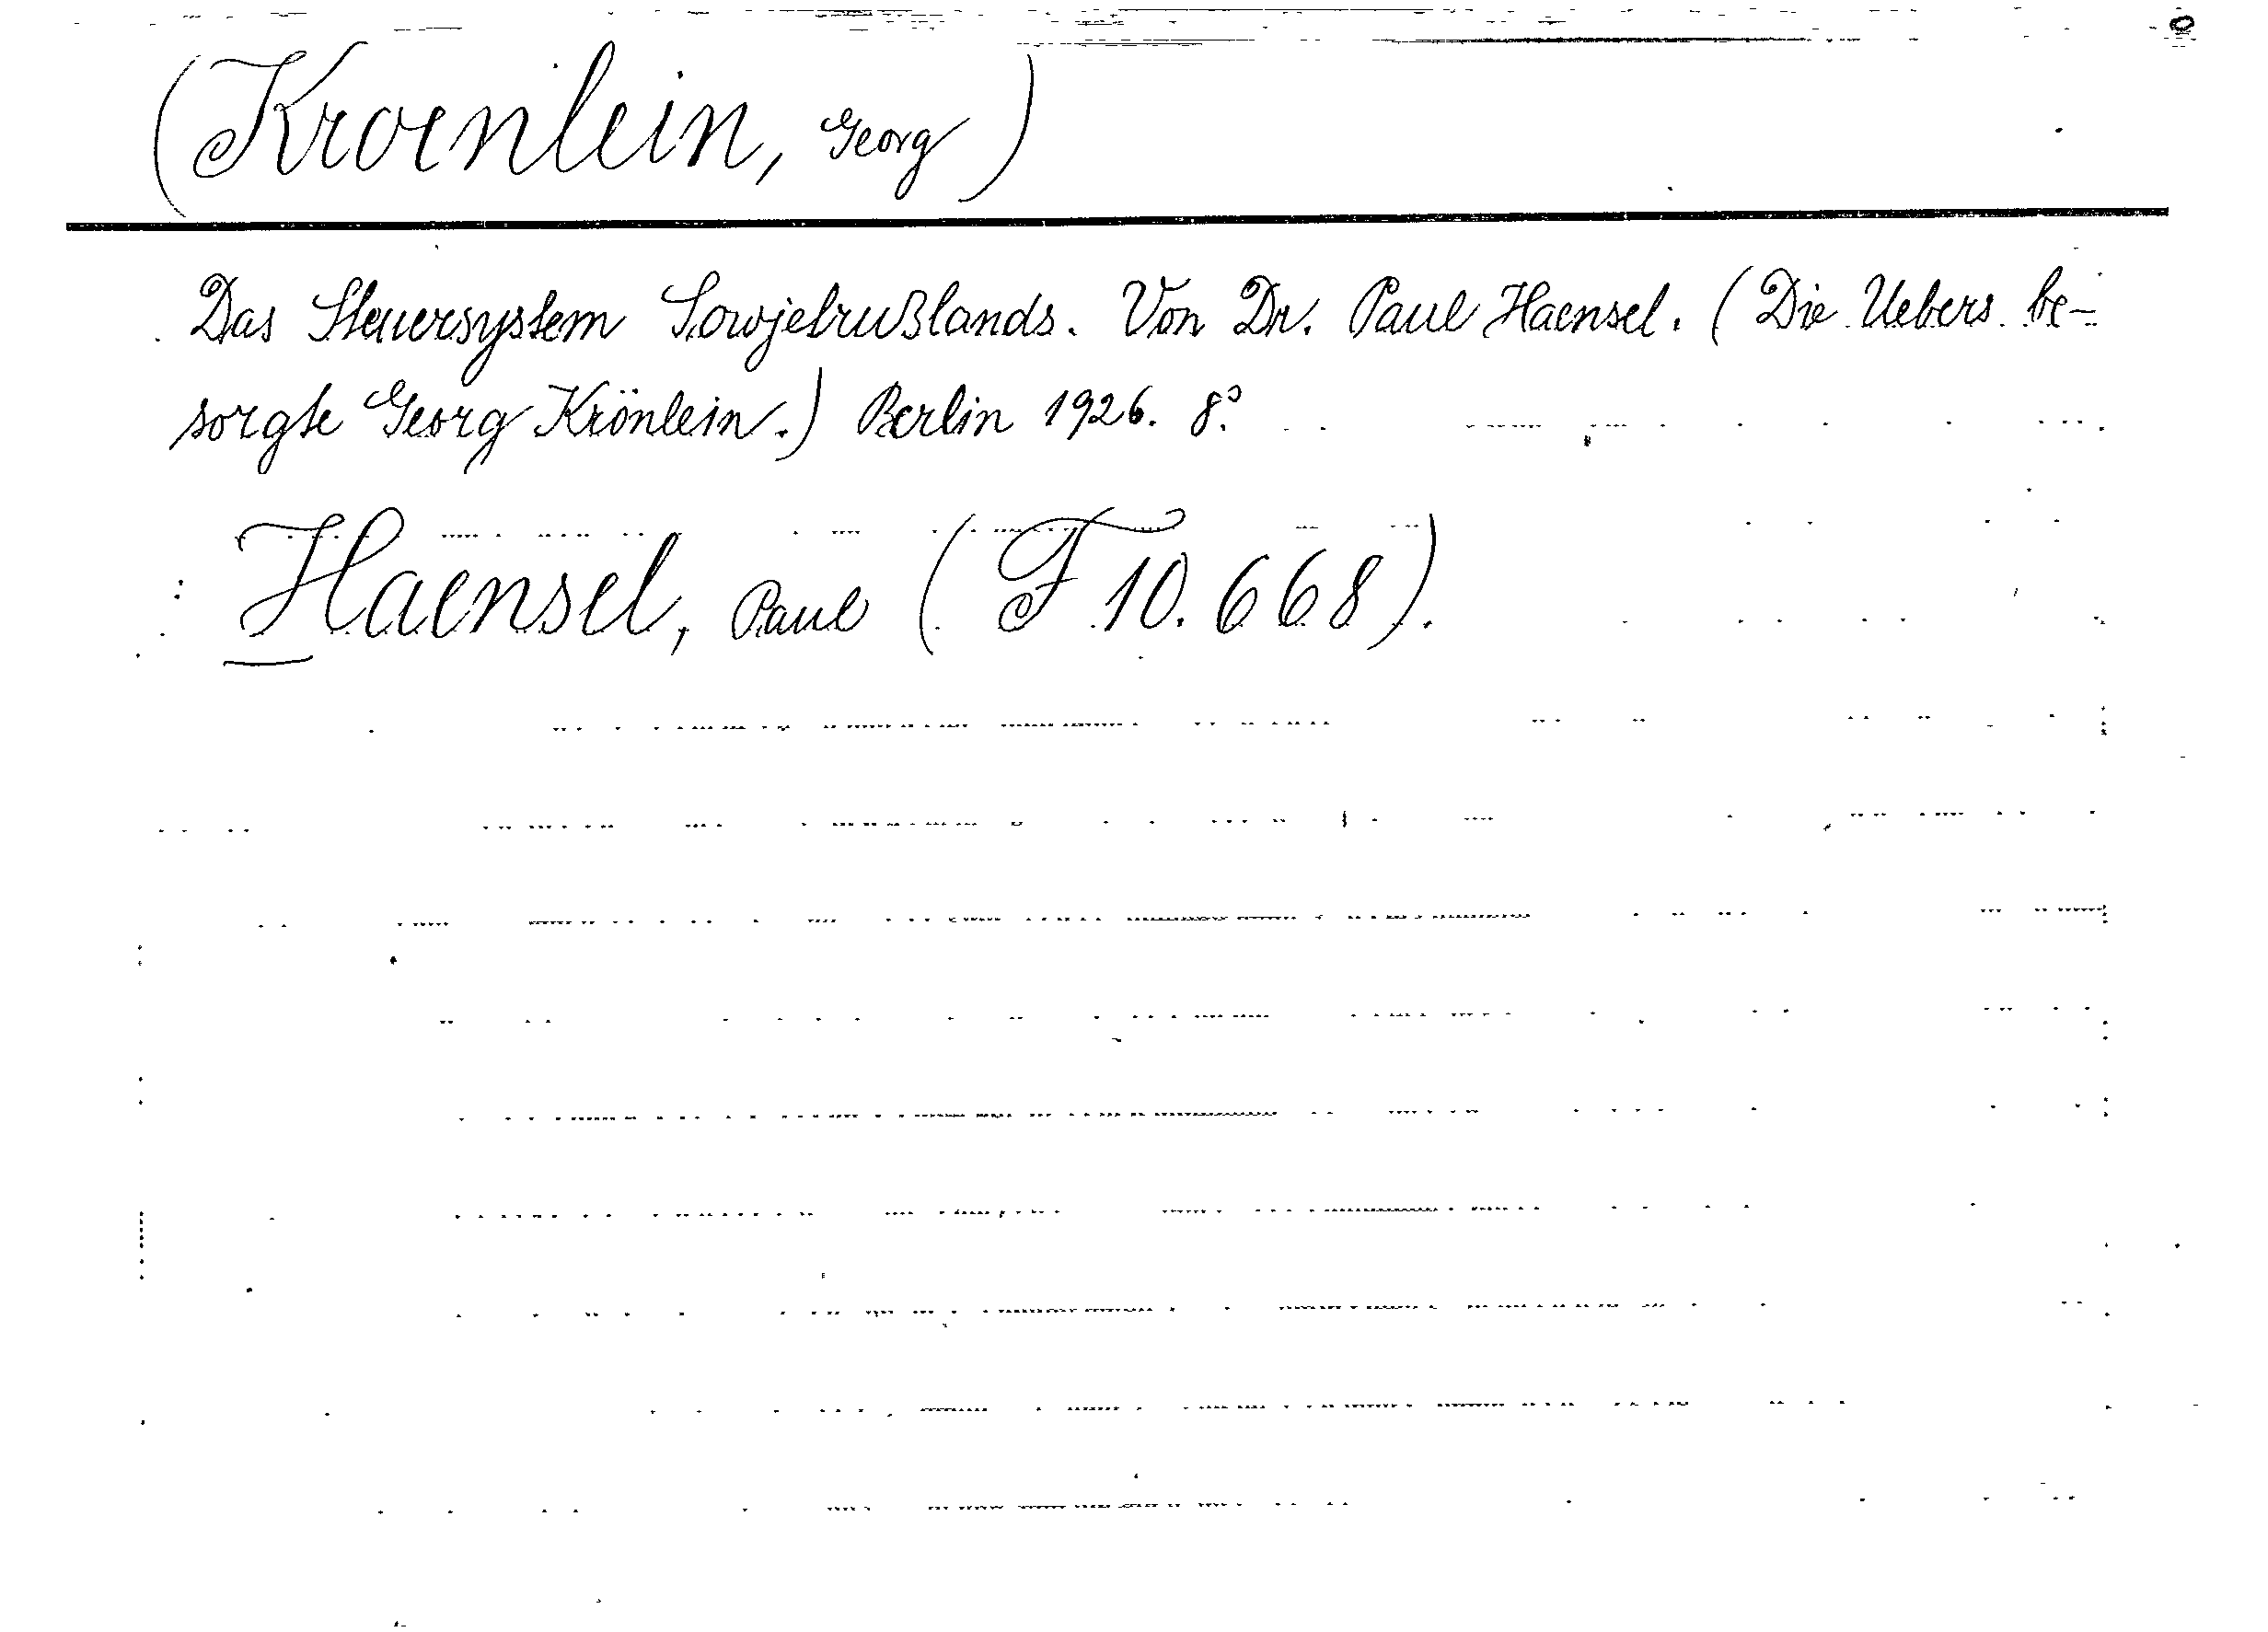 (Kroenlein, Georg)
Das Steuersystem Sowjetrußlands. Von Dr. Paul Haensel. (Die Uebers. be-
sorgte Georg Krönlein.) Berlin 1926. 8°.
Haensel, Paul (F 10.668).